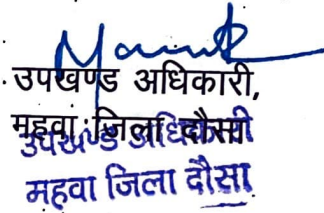 उपखण्ड अधिकारी,
महवा जिला दौसा
उपखण्ड अधिकारी
महवा जिला दौसा